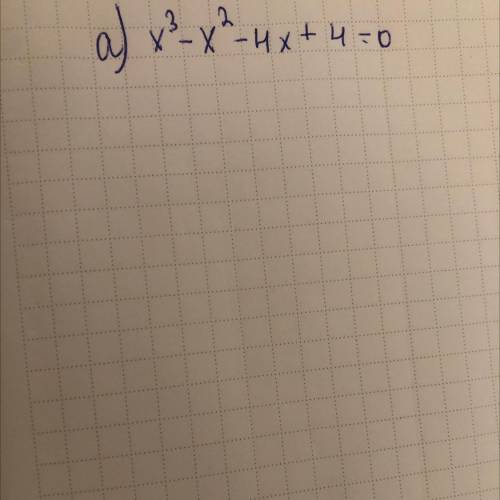 a) x³ - x² - 4x + 4 = 0